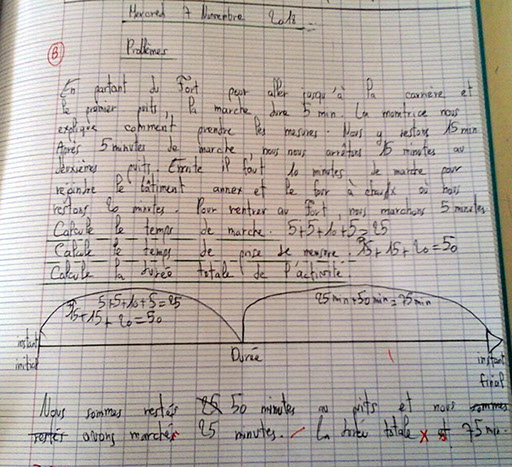 Mercredi 7 Novembre 2018
B
Problèmes
En partant du Fort pour aller jusqu'à la carrière et
le premier puits, la marche dure 5 min. La monitrice nous
explique comment prendre les mesures. Nous y restons 15 min
Après 5 minutes de marche nous nous arrêtons 15 minutes au
deuxièmes puits. Ensuite il faut 10 minutes de marche pour
rejoindre le bâtiment annex et le four à chaux où nous
restons 20 minutes. Pour rentrer au Fort, nous marchons 5 minutes
Calcule le temps de marche. 5+5+10+5=25
Calcule le temps de prise de mesure. 15+15+20=50
Calcule la durée totale de l'activité.
5+5+10+5=25
15+15+20=50
25min+50min=75min
instant initial
Durée
instant final
Nous sommes restés 25 50 minutes au puits et nous sommes
restés avons marchés 25 minutes. La durée totale est 75 min.